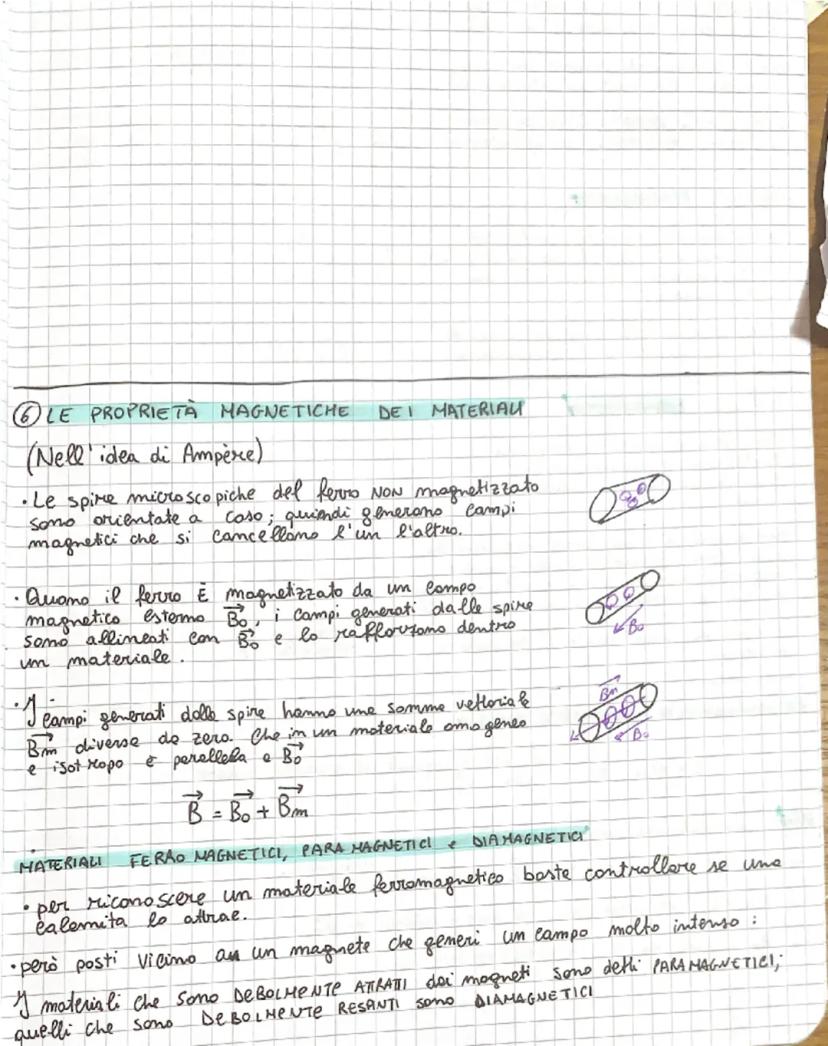 6 LE PROPRIETÀ MAGNETICHE DEI MATERIALI
(Nell'idea di Ampère)
• Le spire microscopiche del ferro NON magnetizzato
sono orientate a caso; quiendi generano campi
magnetici che si cancellano l'un l'altro.
• Quano il ferro È magnetizzato da un campo
magnetico esterno B₀, i campi generati dalle spire
sono allineati con B₀ e lo rafforzano dentro
un materiale.
B₀
• I campi generati dalle spire hanno una somma vettoriale
Bm diversa da zero. Che in un materiale omogeneo
e isotropo è parallela a B₀
Bm
B₀
B = B₀ + Bm
MATERIALI FERROMAGNETICI, PARAMAGNETICI e DIAMAGNETICI
• per riconoscere un materiale ferromagnetico basta controllare se una
calamita lo attrae.
• però posti vicino un magnete che generi un campo molto intenso:
I materiali che sono DEBOLMENTE ATTRATTI dai magneti sono detti PARAMAGNETICI;
quelli che sono DEBOLMENTE RESANTI sono DIAMAGNETICI